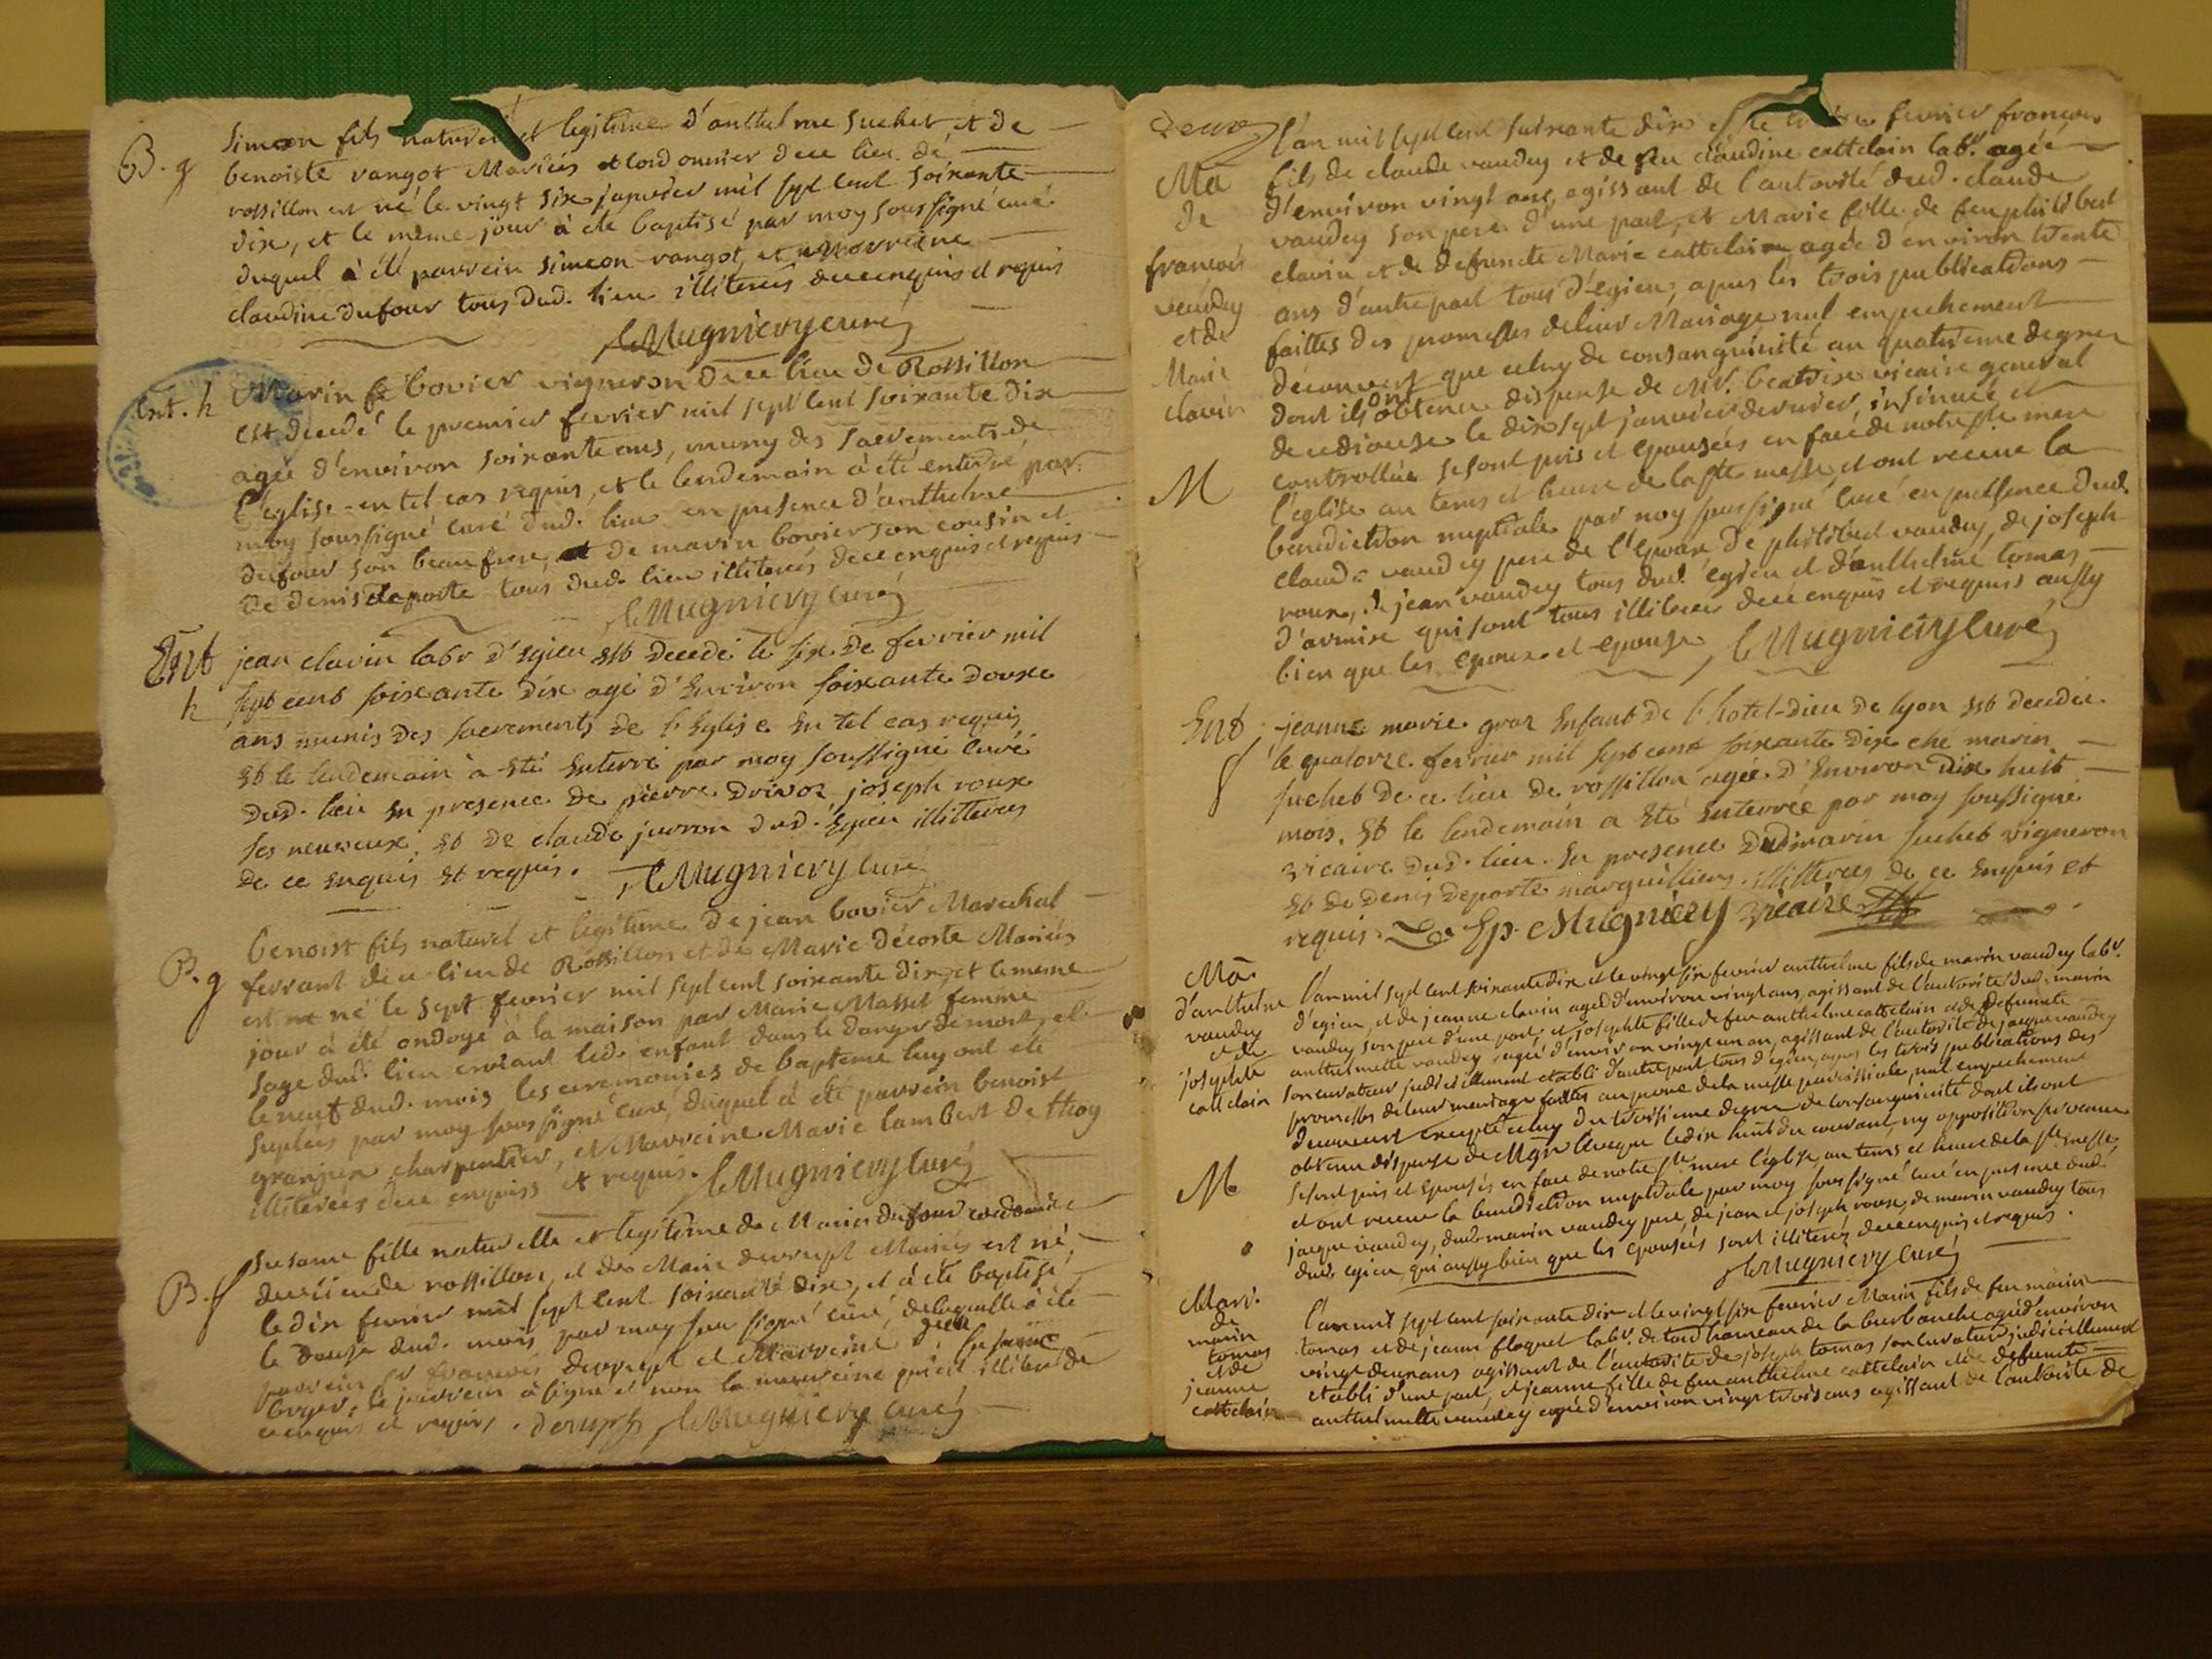 B. g
Simeon fils naturel et legitime d'anthelme suchet, et de
benoiste vangot Mariés et cordonnier de ce lieu de
rossillon est né le vingt six janvier mil sept cent soixante
dix, et le même jour à été baptisé par moy soussigné curé
duquel à été parrein simeon vangot, et marreine
claudine dufour tous dud. lieu illiterés de ce enquis et requis
Mugniery curé
Ent. h
Marin Bovier vigneron de ce lieu de Rossillon
est decedé le premier fevrier mil sept cent soixante dix
agée d'environ soixante ans, muny des sacrements de
l'eglise en tel cas requis, et le lendemain à été enterré par
moy soussigné curé dud. lieu en presence d'anthelme
dufour son beau frere, de marin bovier son cousin et
de denis deporte tous dud. lieu illiterés de ce enquis et requis
Mugniery curé
Ent
h
jean clavin labr d'egieu est decedé le six de fevrier mil
sept cent soixante dix agé d'environ soixante douze
ans munis des sacrements de l'Eglise en tel cas requis
et le lendemain a eté enterré par moy soussigné curé
dud. lieu en presence de pierre drivoz joseph roux
ses neuveux, et de claude juvron dud. Egieu illitteres
de ce enquis et requis. Mugniery curé
B. g
benoist fils naturel et legitime de jean bovier Marechal
ferrant de ce lieu de Rossillon et de Marie décoste Mariés
est né le sept fevrier mil sept cent soixante dix, et le meme
jour à été ondoyé à la maison par Marie Masset femme
sage dud. lieu croiant led. enfant dans le danger de mort, et
le neuf dud. mois les ceremonies de bapteme luy ont été
suplées par moy soussigné curé, duquel à été parrein benoist
granjux charpentier, et Marreine Marie lambert de
illiterées de ce enquis et requis. Mugniery curé
B. f
Susanne fille naturelle et legitime de Marin dufour cordonnier
de ce lieu de rossillon, et de Marie Mariés est né
le dix fevrier mil sept cent soixante dix, et à été baptisé
le dud. mois par moy sous signé curé, de laquelle à été
parrein françois et Marreine susanne
le parrein à signé et non la marreine qui est illiteré de
ce enquis et requis. Mugniery curé
Ma
de
françois
vaudey
et de
Marie
clavin
M
l'an mil sept cent soixante dix et le fevrier françois
fils de claude vaudey et de feu claudine cattelain labr. agée
d'environ vingt ans, agissant de l'autorité dud. claude
vaudey son pere d'une part, et Marie fille de feu philibert
clavin et de defuncte Marie cattelain agée d'environ trente
ans d'autre part tous d'egieu, apres les trois publications
faittes des promesses de leur Mariage nul empechement
decouvert que celuy de consanguinité au quatrieme degrez
dont ils ont obtenu dispense de Mr. vicaire general
de ce diocese le dix sept janvier dernier, insinuée et
controllée se sont pris et epousées en face de notre ste mere
l'eglise au tems et heure de la ste messe, et ont receue la
benediction nuptiale par moy soussigné curé en presence dud.
claude vaudey pere de l'epoux, de philibert vaudey, de joseph
roux, de jean vaudey tous dud. egieu et d'anthelme tomas
d'armix qui sont tous illiteres de ce enquis et requis aussy
bien que les epoux et epouse Mugniery curé
Ent
f
jeanne marie graz Enfant de l'hotel-Dieu de lyon est decedée
le quatorze fevrier mil sept cent soixante dix ché marin
suchet de ce lieu de rossillon agée d'Environ dix huit
mois. Et le lendemain a eté enterrée par moy soussigné
vicaire dud. lieu. En presence dud marin suchet vigneron
et de denis deporte marguillier. illitteres de ce enquis et
requis. Mugniery vicaire
Ma
d'anthelme
vaudey
et de
josephte
cattelain
M
l'an mil sept cent soixante dix et le vingt six fevrier anthelme fils de marin vaudey labr.
d'egieu, et de jeanne clavin aged d'environ vingt ans, agissant de l'autorité dud. marin
vaudey son pere d'une part, et josephte fille de feu anthelme cattelain et de defuncte
anthelmette vaudey agée d'environ vingt un an, agissant de l'autorité de jacque vaudey
son curateur judiciellement etabli d'autre part tous d'egieu, apres les trois publications des
promesses de leur mariage faittes au prone de la messe paroissiale, nul empechement
decouvert excepté celuy du troisieme degrez de consanguinité dont ils ont
obtenu dispense de Mgr l'eveque le dix huit du courant, ny opposition survenue
se sont pris et epousés en face de notre ste mere l'eglise, au tems et heure de la ste messe,
et ont receue la benediction nuptiale par moy sous signé curé en presence dud.
jacque vaudey, dud. marin vaudey pere, de jean et joseph roux, de marin vaudey tous
dud. egieu, qui aussy bien que les epousés sont illiterés de ce enquis et requis.
Mugniery curé
Mari.
de
marin
tomas
et de
jeanne
cattelain
l'an mil sept cent soixante dix et le vingt six fevrier Marin fils de feu marin
tomas et de jeanne floquet labr. hameau de la burbanche agé d'environ
vingt deux ans agissant de l'autorité de joseph tomas son curateur judiciellement
etabli d'une part, et jeanne fille de feu anthelme cattelain et de defuncte
anthelmette vaudey agée d'environ vingt trois ans agissant de l'autorité de